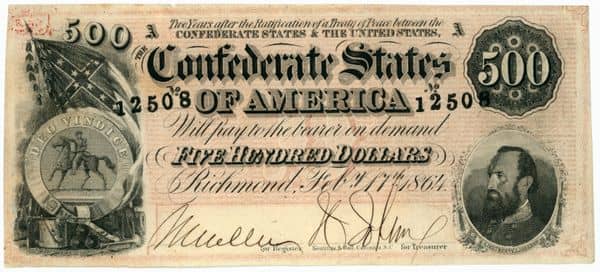 Two Years after the Ratification of a Treaty of Peace between the
A CONFEDERATE STATES & THE UNITED STATES, A
500 THE Confederate States 500
No 12508 OF AMERICA No 12508
Will pay to the bearer on demand
DEO VINDICE
FIVE HUNDRED DOLLARS
Richmond, Feby. 17th, 1864
for Register Keatinge & Ball, Columbia, S.C. for Treasurer